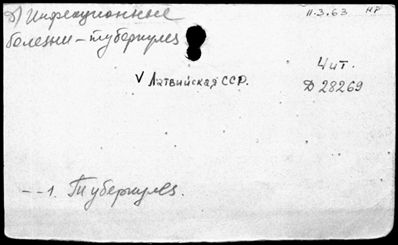 5) Инфекционные
болезни – туберкулез
11-3.63 НР
Чит.
Д 28269
V Латвийская ССР.
--1. Туберкулез.